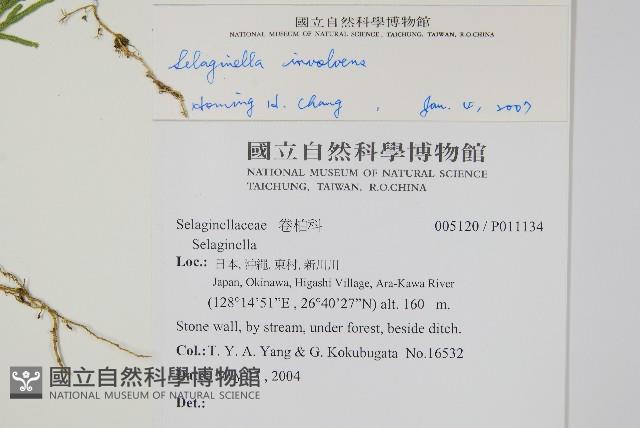 國立自然科學博物館
NATIONAL MUSEUM OF NATURAL SCIENCE, TAICHUNG, TAIWAN, R.O.CHINA
Selaginella involvens
Homing H. Chang , Jan. 4, 2007
國立自然科學博物館
NATIONAL MUSEUM OF NATURAL SCIENCE
TAICHUNG, TAIWAN, R.O.CHINA
Selaginellaceae 卷柏科 005120 / P011134
Selaginella
Loc.: 日本, 沖繩, 東村, 新川川
Japan, Okinawa, Higashi Village, Ara-Kawa River
(128°14'51"E , 26°40'27"N) alt. 160 m.
Stone wall, by stream, under forest, beside ditch.
Col.: T. Y. A. Yang & G. Kokubugata No.16532
, 2004
Det.:
國立自然科學博物館
NATIONAL MUSEUM OF NATURAL SCIENCE